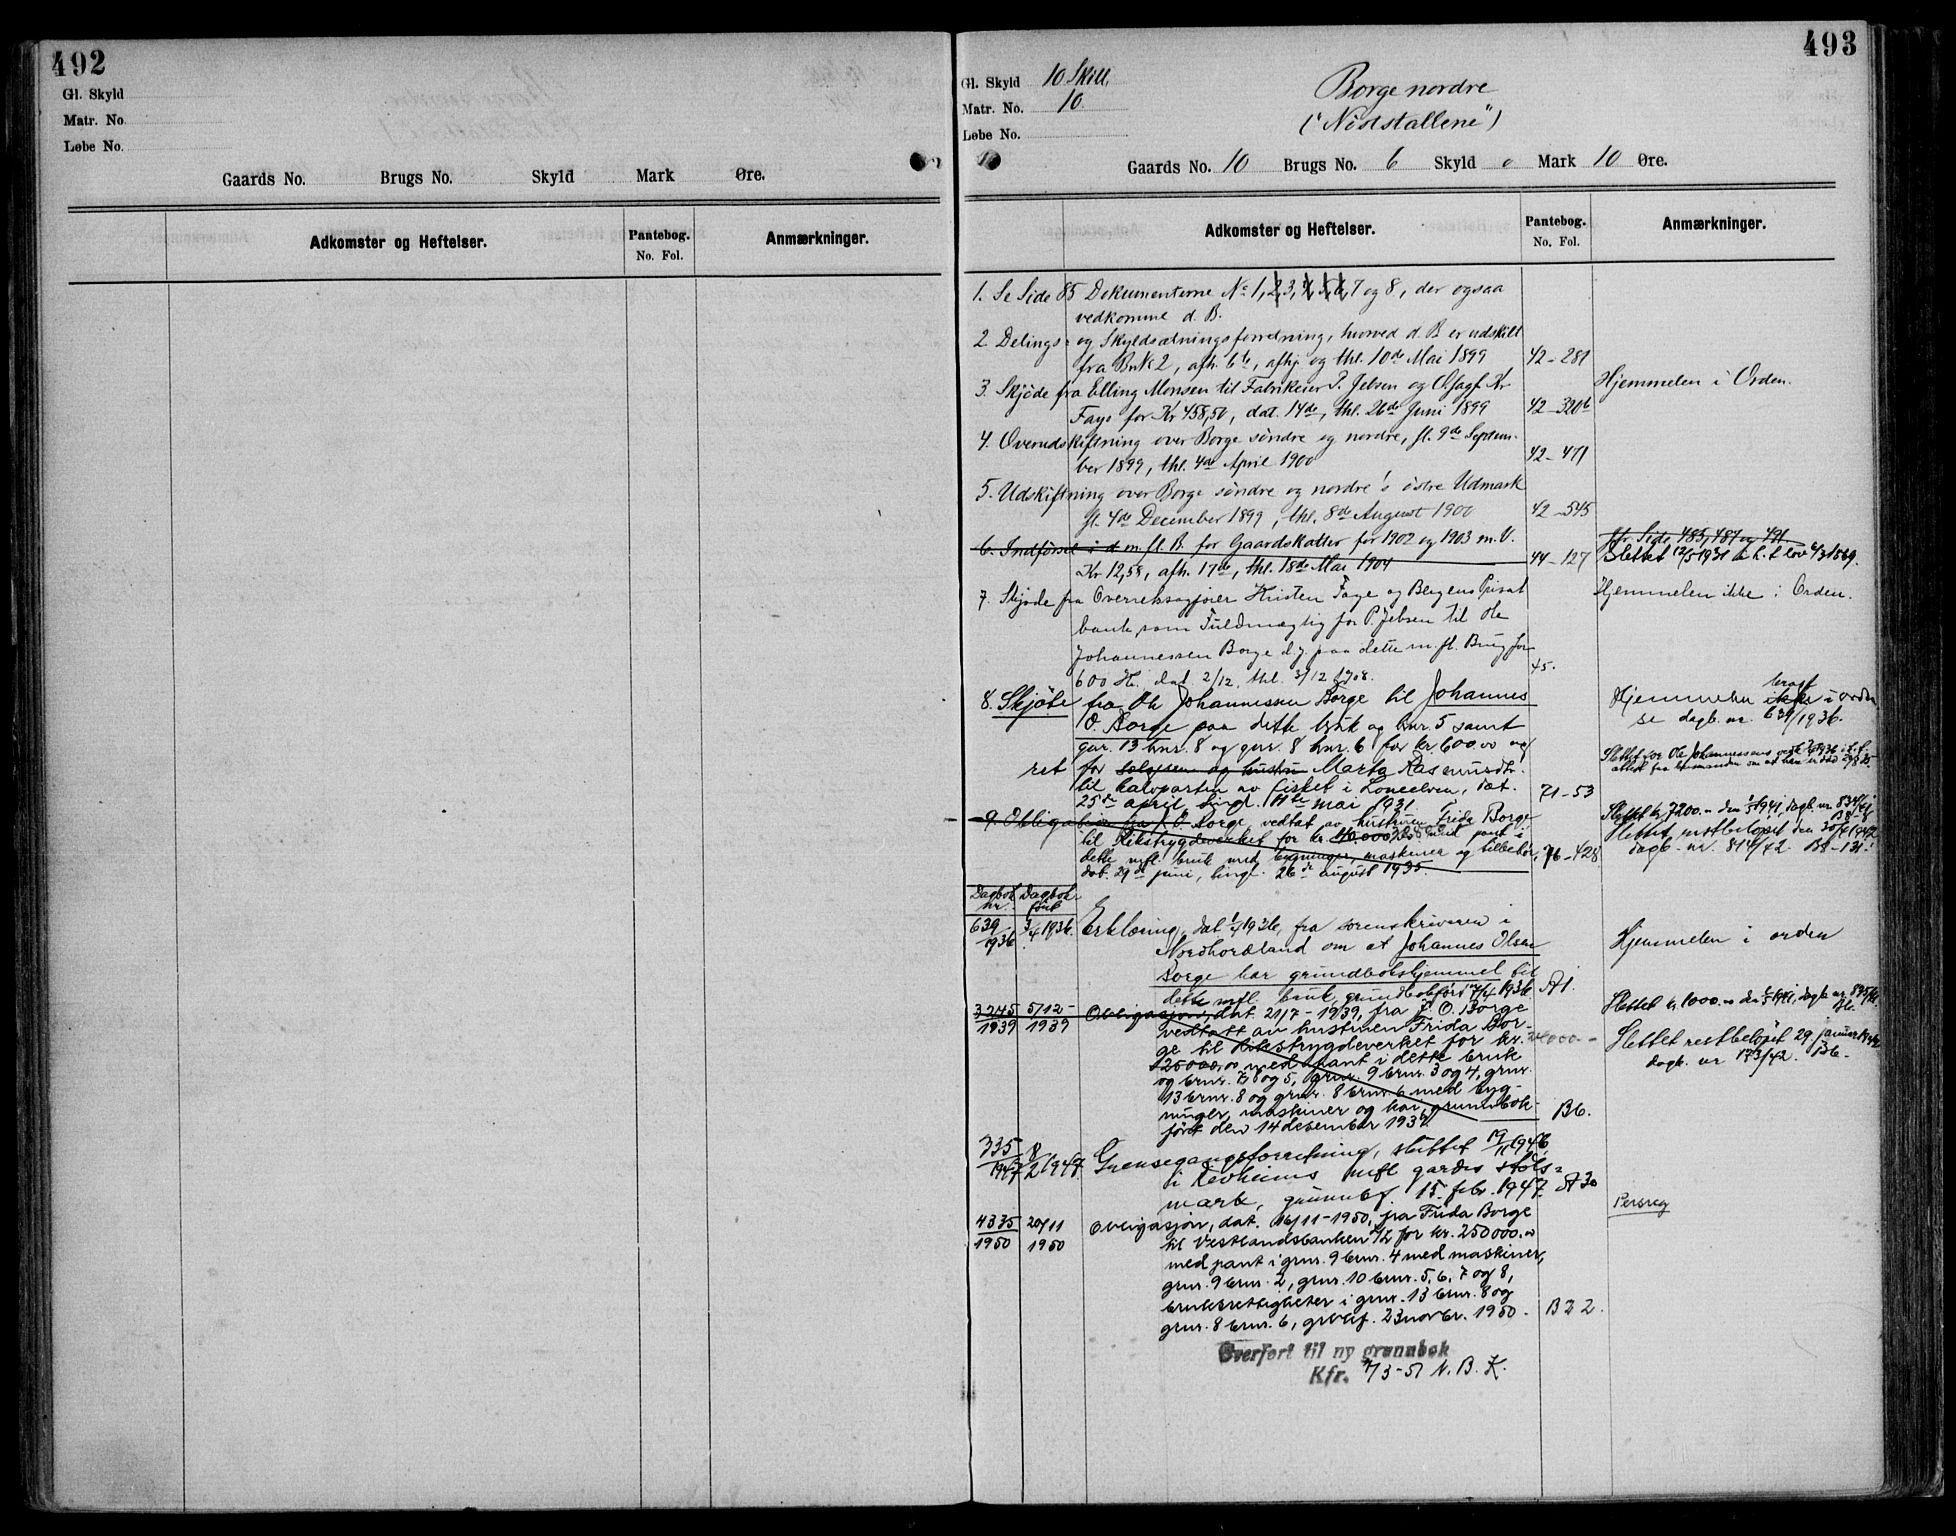 492
Gl. Skyld
Matr. No.
Løbe No.
Gaards No. Brugs No. Skyld Mark Øre.
Adkomster og Heftelser.
Pantebog.
No. Fol.
Anmærkninger.
493
Gl. Skyld 10 Skill.
Matr. No. 10.
Løbe No.
Borge nordre
("Niststallene")
Gaards No. 10 Brugs No. 6 Skyld 0 Mark 10 Øre.
Adkomster og Heftelser.
Pantebog.
No. Fol.
Anmærkninger.
1. Se Side 85 Dokumenterne No 1, 2, 3, 4, 5, 6, 7 og 8, der ogsaa
vedkomme d. B.
2. Delings- og Skyldsætningsforretning, hvorved d. B. er udskilt
fra Bnk 2, afh. 6te, afhj og thl. 10de Mai 1899 42-281
3. Skjøde fra Elling Monsen til Fabrikeier P. Jebsen og O.sagf. Kr Hjemmelen i Orden.
Faye for Kr 458,50, dat. 14de, thl. 26de Juni 1899 42-320b
4. Overudskiftning over Borge søndre og nordre, sl. 9de Septem-
ber 1899, thl. 4de April 1900 42-471
5. Udskiftning over Borge søndre og nordre's østre Udmark
sl. 4de December 1899, thl. 8de August 1900 42-545
6. Indførsel i d. m. fl. B. for Gaardskatter for 1902 og 1903 m. V. jfr. Side 485, 487 og 491
Kr 12,58, afh. 17de, thl. 18de Mai 1904 44-127 Slettet 12/5 1931 i h. t. lov
7. Skjøde fra Overretssagfører Kristen Faye og Bergens Privat Hjemmelen ikke i Orden.
bank som Fuldmægtig for P. Jebsen til Ole
Johannessen Borge d.y. paa dette m. fl. Brug for
600 Kr. dat 2/12, thl. 3/12 1908. 45-
8. Skjøte fra Ole Johannessen Borge til Johannes Hjemmelen ikke i orden
O. Borge paa dette bruk og bnr. 5 samt se dagb. nr. 639/1936.
gnr. 13 bnr. 8 og gnr. 8 bnr. 6 for kr. 600.00 og
ret for selgeren og hustru Marta Rasmusdtr.
til halvparten av fisket i Loneelven, dat.
25de april, tingl. 11te mai 1931. 71-53
9. Obligasjon fra J. O. Borge, vedtat av hustruen Frida Borge Slettet kr. 7200.- den 1941, dagb. nr. 834/41
til Rikstrygdeverket for kr. 40.000 med pant i Slettet restbeløpet den 30/4 1942
dette mfl. bruk med bygninger, maskiner og tilbehør, 76-428 dagb. nr. 814/42 B8-131.
dat. 29de juni, tingl. 26de august 1935.
Dagbok nr. Dagbok-ført
639/1936 3/4 1936. Erklæring, dat. 1/4 1936, fra sorenskriveren i
Nordhordland om at Johannes Olsen Hjemmelen i orden
Borge har grundbokshjemmel til
dette mfl. bruk, grundbokført 7/4 1936. A1.
3245/1939 5/12-1939 Obligasjon, dat. 21/7-1939, fra J. O. Borge Slettet kr. 1000.- den 1941, dagb. nr. 835/41
vedtatt av hustruen Frida Bor-
ge til Rikstrygdeverket for kr. 24000.- Slettet restbeløpet 29. januar 1942
25000,00 med pant i dette bruk dagb. nr 173/42. B6-
og bnr. 7, 8 og 5, gnr. 9 bnr. 3 og 4, gnr.
13 bnr. 8 og gnr. 8 bnr. 6 med byg-
ninger, maskiner og kar, grunnbok-
ført den 14 desember 1939. B6.
335/1947 8/2 1947. Grensegangsforretning, sluttet 19/11 1946
i Revheims mfl gardes støls-
mark, grunnbf. 15. febr. 1947. A30
Persreg
4335/1950 20/11 1950 Obligasjon, dat. 16/11-1950, fra Frida Borge
til Vestlandsbanken A/L for kr. 250000.00
med pant i gnr. 9 bnr. 4 med maskiner,
gnr. 9 bnr. 2, gnr. 10 bnr. 5, 6, 7 og 8,
bruksrettigheter i gnr. 13 bnr. 8 og
gnr. 8 bnr. 6, grbkf. 23 novbr. 1950. B22.
Overført til ny grunnbok
Kfr. 7/3-51 N. B. K.